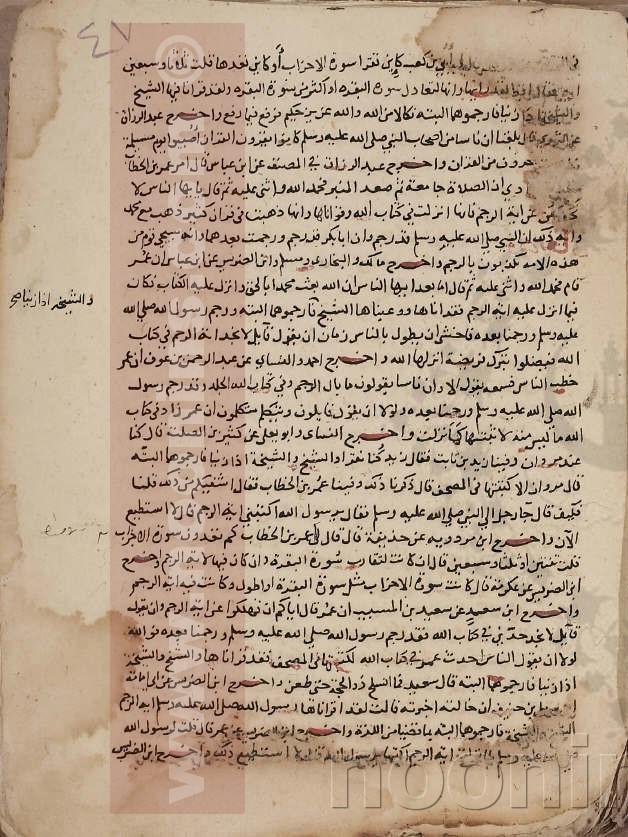 ٤٧
بي بن كعب كاين تقرا سورة الاحزاب أو كاين تعدها قلت ثلاثا وسبعين
لقد رايتها وانها لتعادل سورة البقره او اكثر من سورة البقره ولقد قرانا فيها الشيخ
زنيا فارجموهما البته نكالا من الله والله عزيز حكيم فرفع فيما رفع واخرج عبد الرزاق
قال بلغنا ان ناسا من اصحاب النبي صلى الله عليه وسلم كانوا يقرون القران اصيبوا يوم مسيلمة
حروف من القران واخرج عبد الرزاق في المصنف عن ابن عباس قال امر عمر بن الخطاب
ان الصلاة جامعة ثم صعد المنبر فحمد الله واثنى عليه ثم قال يايها الناس لا
عن اية الرجم فانها انزلت في كتاب الله وقراناها وانها ذهبت في قران كثير ذهب مع محمد
واية ذلك ان النبي صلى الله عليه وسلم قد رجم وان ابا بكر قد رجم ورجمت بعدهما وانه سيجي قوم من
هذه الامه يكذبون بالرجم واخرج مالك والبخاري ومسلم وابن الضريس عن ابن عباس ان عمر
قام فحمد الله واثنى عليه ثم قال اما بعد ايها الناس ان الله بعث محمدا بالحق وانزل عليه الكتاب فكان
فيما انزل عليه اية الرجم فقراناها ووعيناها الشيخ فارجموهما البته ورجم رسول الله صلى الله
والشيخه اذا زنيا صح
عليه وسلم ورجمنا بعده فاخشى ان يطول بالناس زمان ان يقول قايل لا نجد اية الرجم في كتاب
الله فيضلوا بترك فريضة انزلها الله واخرج احمد والنساي عن عبد الرحمن بن عوف ان عمر
خطب الناس فسمعه يقول الا وان ناسا يقولون ما بال الرجم وفي كتاب الله الجلد وقد رجم رسول
الله صلى الله عليه وسلم ورجمنا بعده ولولا ان يقول قايلون ويتكلم متكلمون ان عمر زاد في كتاب
الله ما ليس منه لاثبتها كما نزلت واخرج النساي وابو يعلى عن كثير بن الصلت قال كنا
عند مروان وفينا زيد بن ثابت فقال زيد كنا نقرا والشيخ والشيخة اذا زنيا فارجموهما البته
قال مروان الا كتبتها في المصحف قال ذكرنا ذلك وفينا عمر بن الخطاب فقال اشفيكم من ذلك قلنا
فكيف قال جا رجل الى النبي صلى الله عليه وسلم فقال يرسول الله اكتبني اية الرجم قال لا استطيع
الآن واخرج ابن مردويه عن حذيفة قال قال لي عمر بن الخطاب كم تعدون سورة الاحزاب
قلت ثنتين او ثلثا وسبعين قال ان كانت لتقارب سورة البقره وان كان فيها لاية الرجم واخرج
ابن الضريس عن عكرمة قال كانت سورة الاحزاب مثل سورة البقره او اطول وكانت فيه اية الرجم
واخرج ابن سعيد عن سعيد بن المسيب ان عمر قال اياكم ان تهلكوا عن اية الرجم وان يقول
قايل لا نجد حدين في كتاب الله فقد رجم رسول الله صلى الله عليه وسلم ورجمنا بعده فوالله
لولا ان يقول الناس احدث عمر في كتاب الله لكتبتها في المصحف فقد قراناها والشيخ والشيخة
اذا زنيا فارجموهما البته قال سعيد فما انسلخ ذو الحجة حتى طعن واخرج ابن الضريس عن ابي امامة
بن سهل بن حنيف ان خالته اخبرته قالت لقد اقرانا رسول الله صلى الله عليه وسلم اية الرجم
الشيخة فارجموهما البته بما قضيا من اللذة واخرج ابن الضريس عن عمر قال قلت لرسول الله
صلى الله عليه وسلم لما نزلت اية الرجم اكتبها يرسول الله قال لا استطيع ذلك واخرج ابن الضريس
noonin